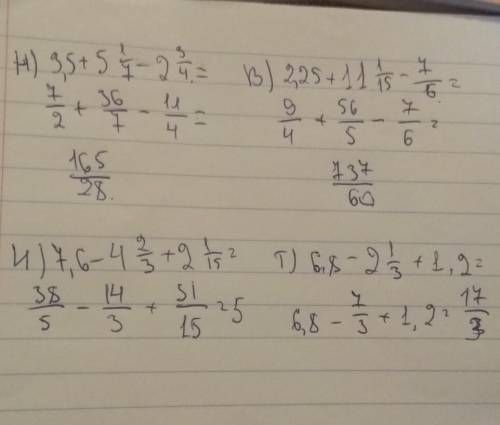 Н) 3,5 + 5 1/7 - 2 3/4 =
7/2 + 36/7 - 11/4 =
165/28.
В) 2,25 + 11 1/15 - 7/6 =
9/4 + 56/5 - 7/6 =
737/60
И) 7,6 - 4 2/3 + 2 1/15 =
38/5 - 14/3 + 31/15 = 5
Т) 6,8 - 2 1/3 + 1,2 =
6,8 - 7/3 + 1,2 = 17/3